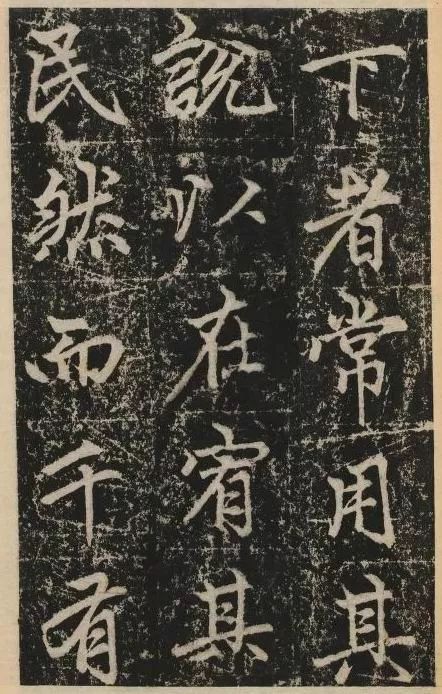 下者常用其
說以在宥其
民然而千有